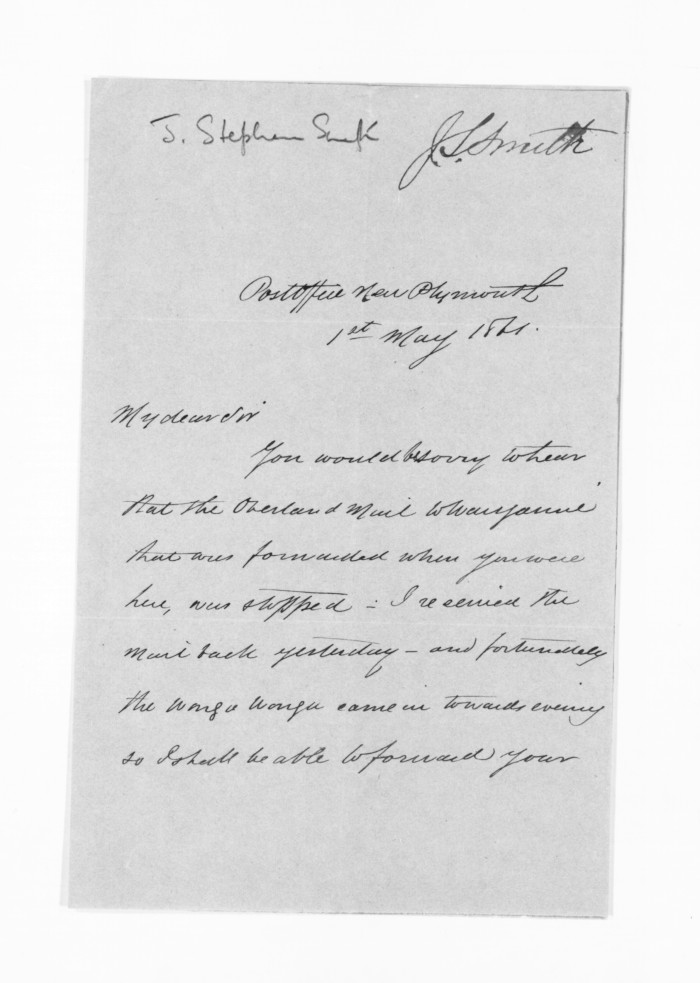 J. Stephen Smith
J.S. Smith
Post Office New Plymouth
1st May 1861.
My dear Sir
You would be sorry to hear
that the Overland Mail to Wanganui
that was forwarded when you were
here, was stopped - I received the
mail back yesterday - and fortunately
the Wonga Wonga came in towards evening
so I shall be able to forward your